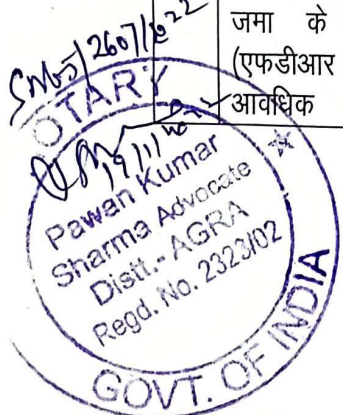 जमा के
(एफडीआर
आवधिक
2607/2022
NOTARY
Pawan Kumar
Sharma Advocate
Distt.- AGRA
Regd. No. 2323/02
GOVT. OF INDIA